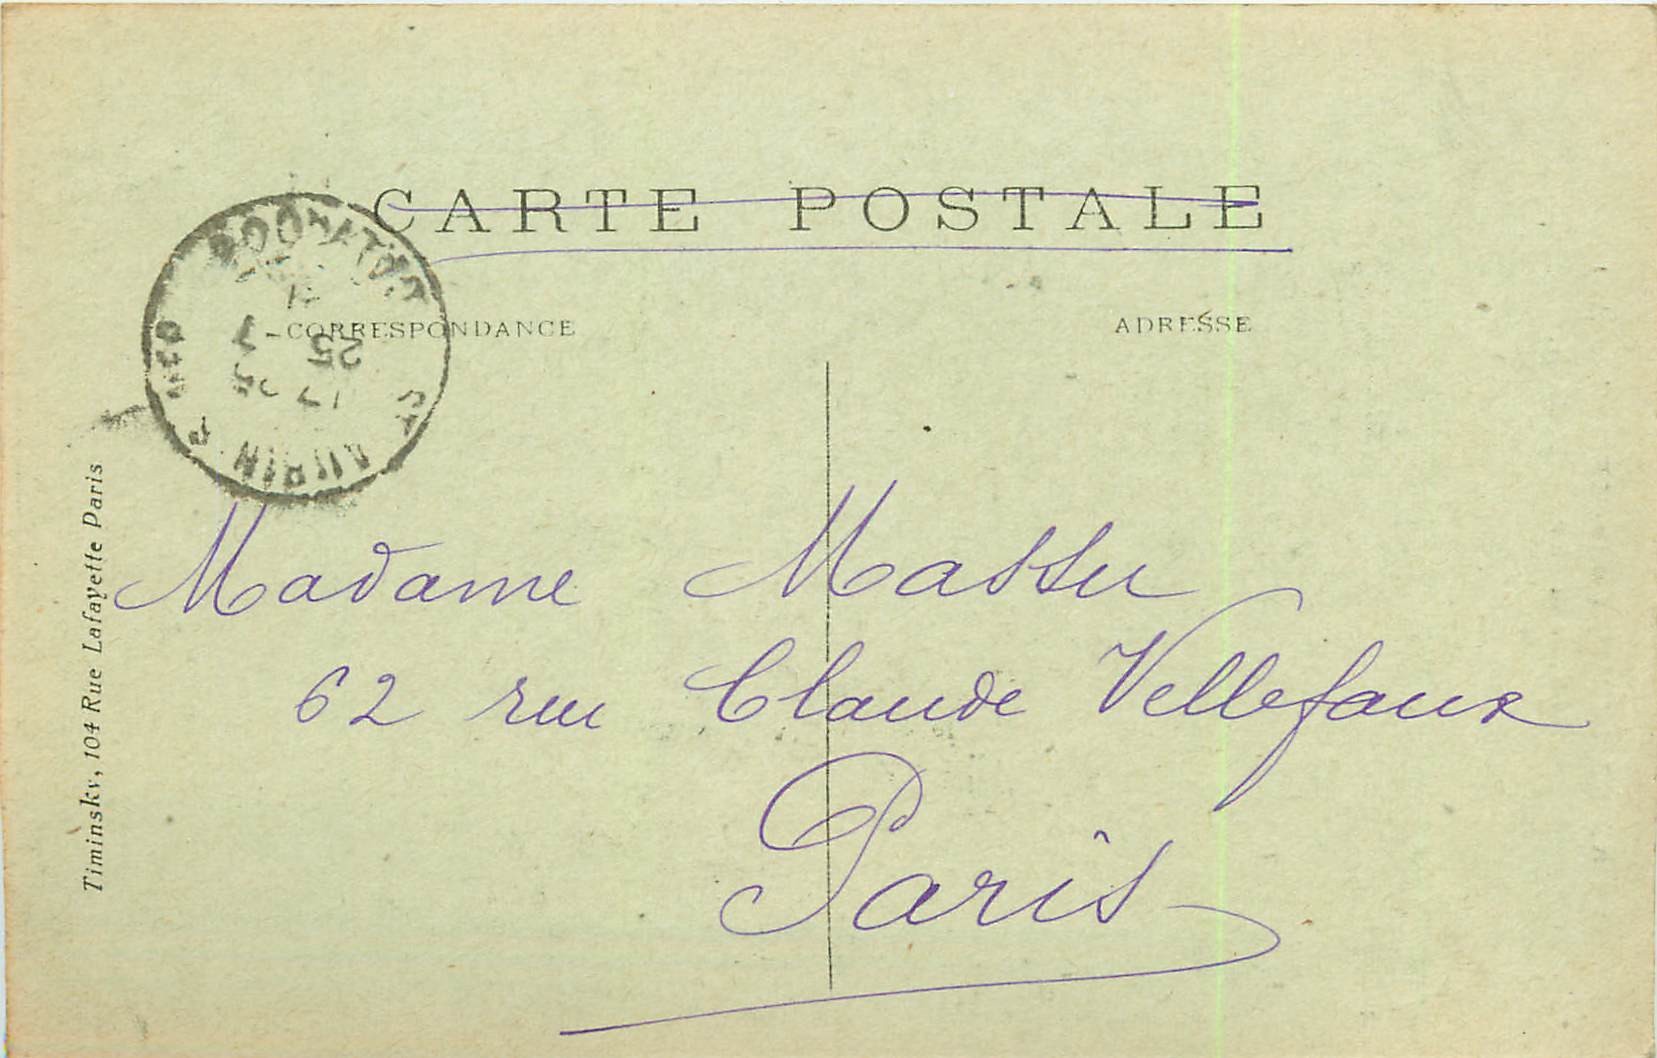 CARTE POSTALE
CORRESPONDANCE
ADRESSE
25
Madame Massu
62 rue Claude Vellefaux
Paris
Timinsky, 104 Rue Lafayette Paris